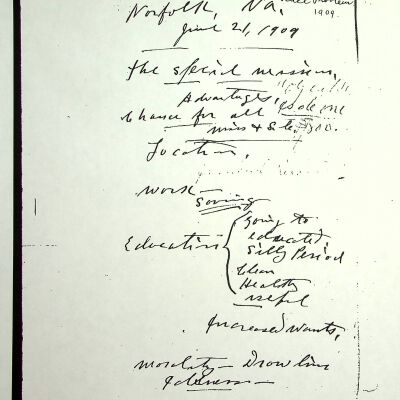 Norfolk, Va.
1909.
June 21, 1909
The special mission,
Advantages,
Chance for all
Location,
Work—
Saving
Education { Going to
educated
Silly Period
Clean
Healthy
useful
Increased wants,
Morality — Draw line
Idleness —